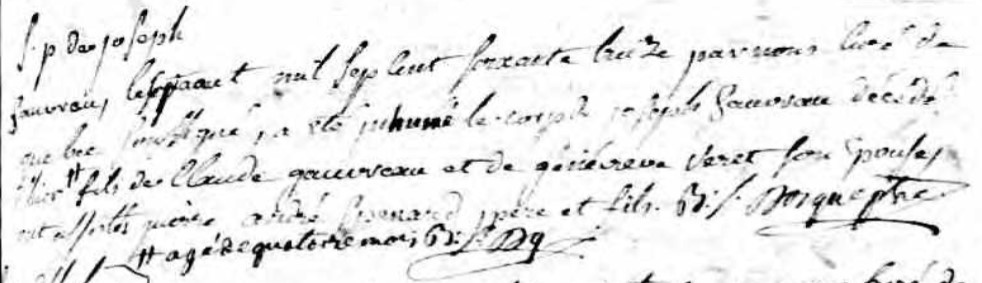 S. p de joseph
gauvreau, le sept aout mil sept cent soixante treize par nous curé de
quebec soussigné, a été inhumé le corps de joseph Gauvreau décédé
hier # fils de Claude gauvreau et de génévieve Veret son Epouse,
ont assistés pierre andré Spenard, pere et fils. B:
# agé de quatorze mois B: